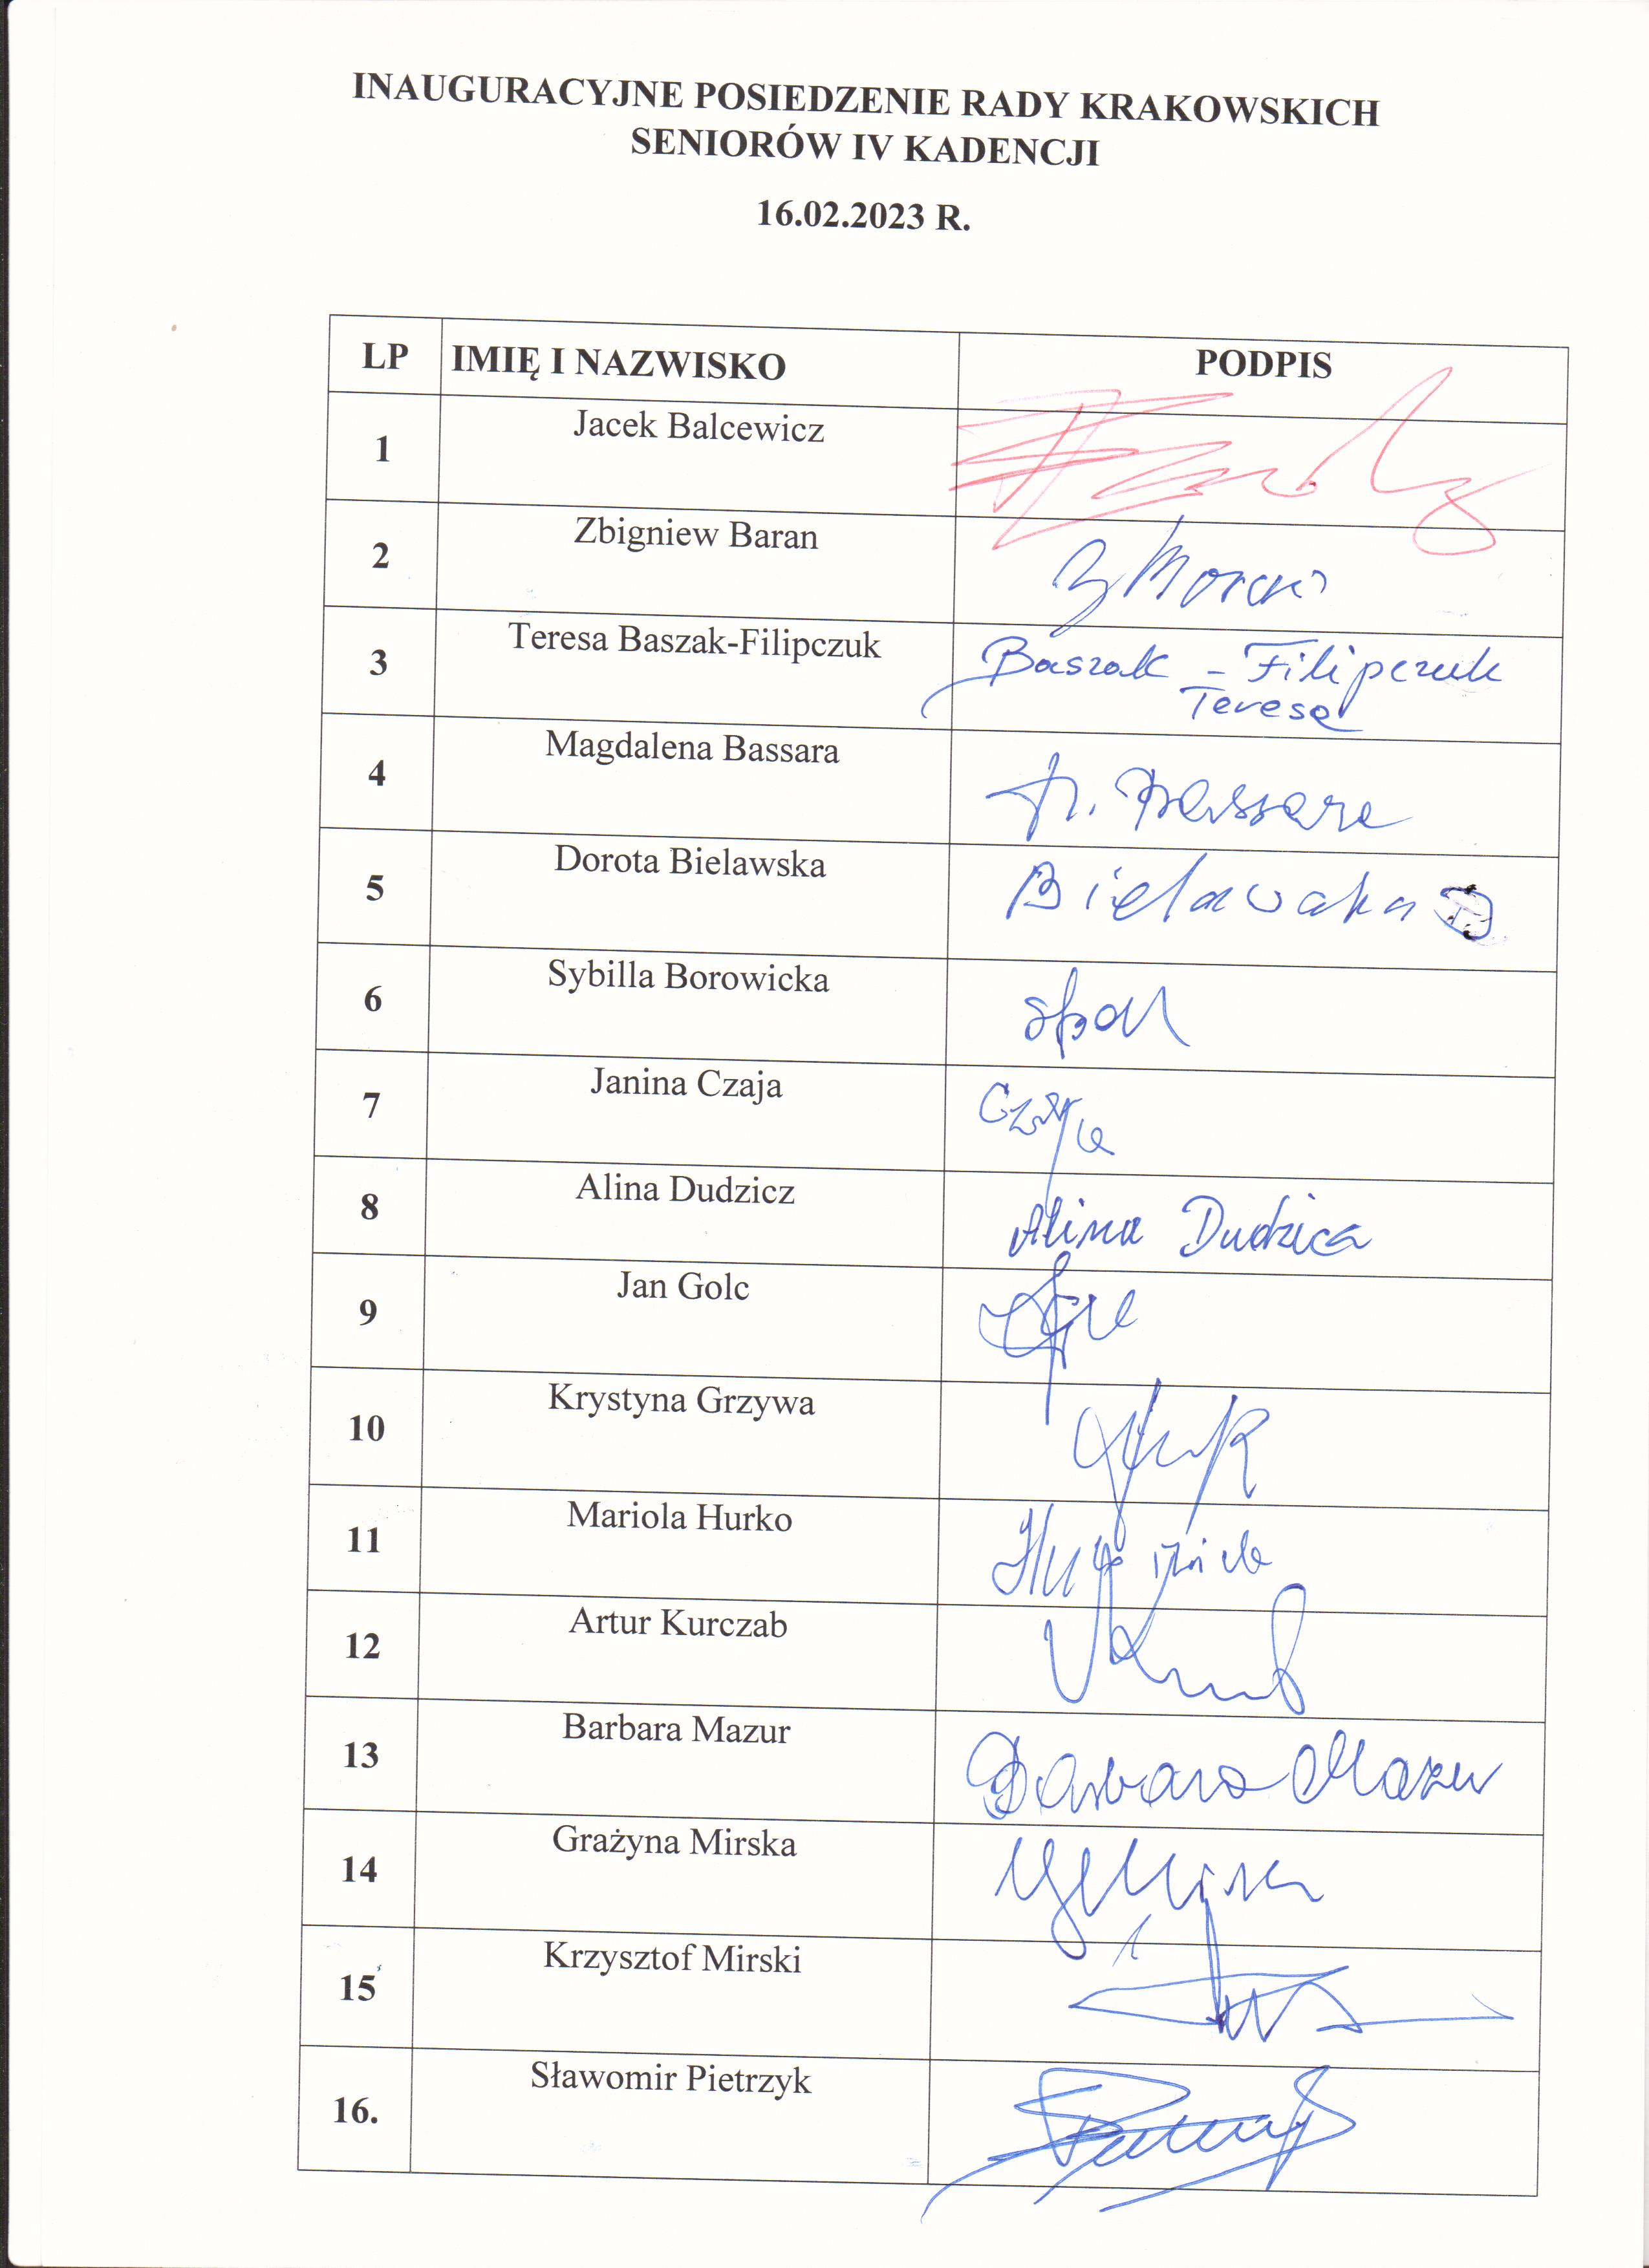 INAUGURACYJNE POSIEDZENIE RADY KRAKOWSKICH
SENIORÓW IV KADENCJI
16.02.2023 R.
LP IMIĘ I NAZWISKO PODPIS
1 Jacek Balcewicz
2 Zbigniew Baran
3 Teresa Baszak-Filipczuk Baszak - Filipczuk
Teresa
4 Magdalena Bassara M. Bassara
5 Dorota Bielawska Bielawska D
6 Sybilla Borowicka
7 Janina Czaja Czaja
8 Alina Dudzicz Alina Dudzicz
9 Jan Golc
10 Krystyna Grzywa
11 Mariola Hurko
12 Artur Kurczab
13 Barbara Mazur Barbara Mazur
14 Grażyna Mirska
15 Krzysztof Mirski
16. Sławomir Pietrzyk